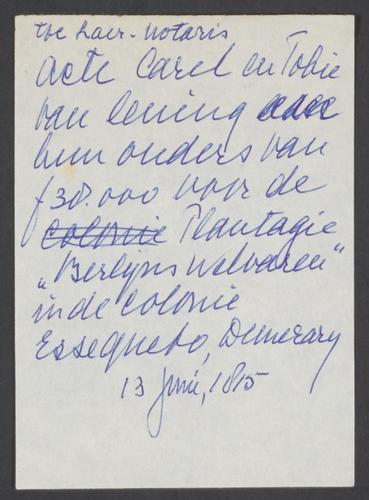 toe Laer - Notaris
acte Carel en Tobie
van lening aan
hun ouders van
f 30.000 voor de
colonie Plantagie
„Berlijns Welvaren"
in de colonie
Essequebo, Demerary
13 Juni, 1815